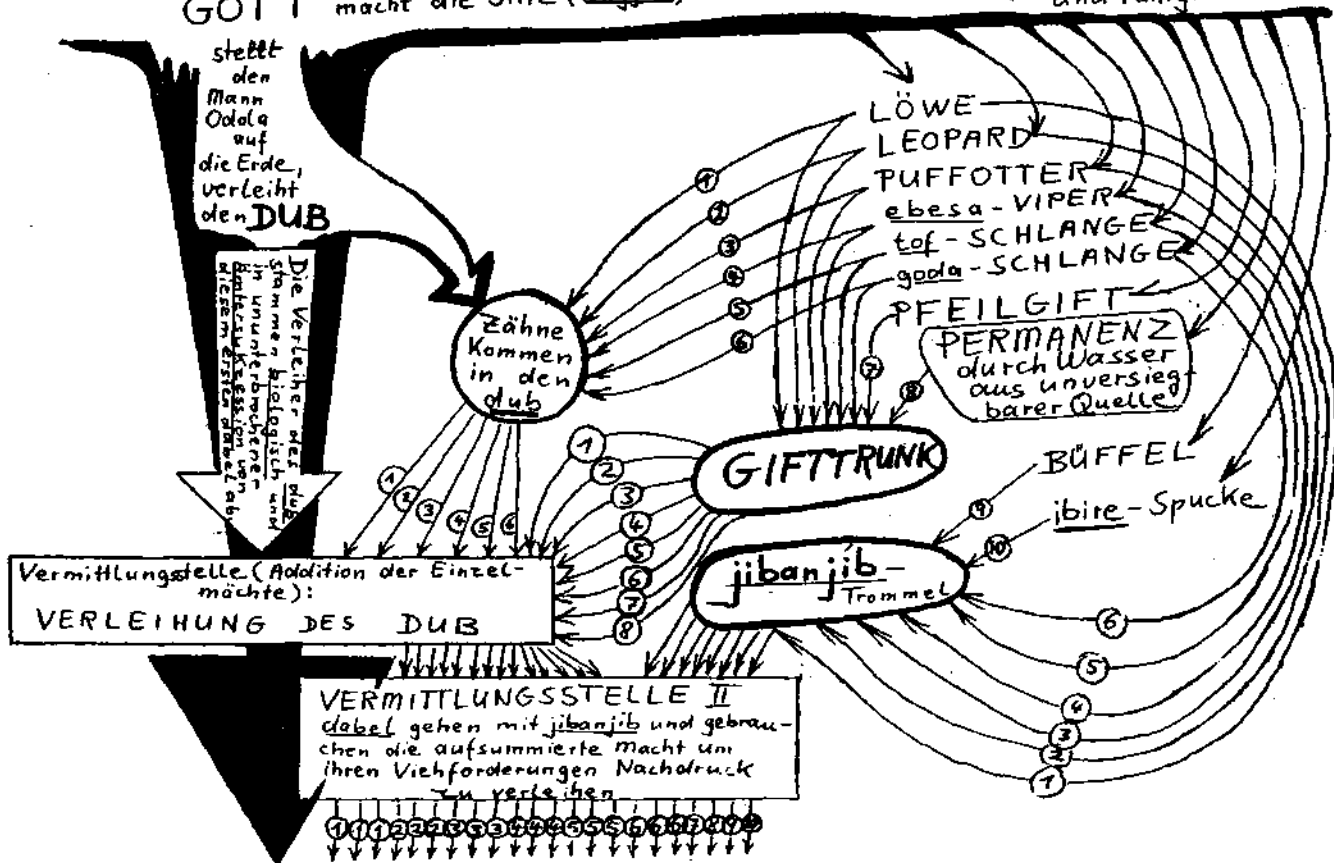 GOTT macht die
und
stellt
den
Mann
Odola
auf
die Erde,
verleiht
den DUB
Die Verleiher des dub
stammen biologisch und
in ununterbrochener
Amtssukzession von
diesem ersten dabel ab.
LÖWE
LEOPARD
PUFFOTTER
ebesa-VIPER
tof-SCHLANGE
goda-SCHLANGE
PFEILGIFT
PERMANENZ
durch Wasser
aus unversieg-
barer Quelle
BÜFFEL
ibire-Spucke
1
2
3
4
5
6
7
8
9
10
Zähne
Kommen
in den
dub
GIFTTRUNK
jibanjib-
Trommel
1
2
3
4
5
6
1
2
3
4
5
6
7
8
6
5
4
3
2
1
Vermittlungsstelle (Addition der Einzel-
mächte):
VERLEIHUNG DES DUB
VERMITTLUNGSSTELLE II
dabel gehen mit jibanjib und gebrau-
chen die aufsummierte Macht um
ihren Viehforderungen Nachdruck
zu verleihen
1 1 1 2 2 2 3 3 3 4 4 4 5 5 5 6 6 6 7 8 9 10